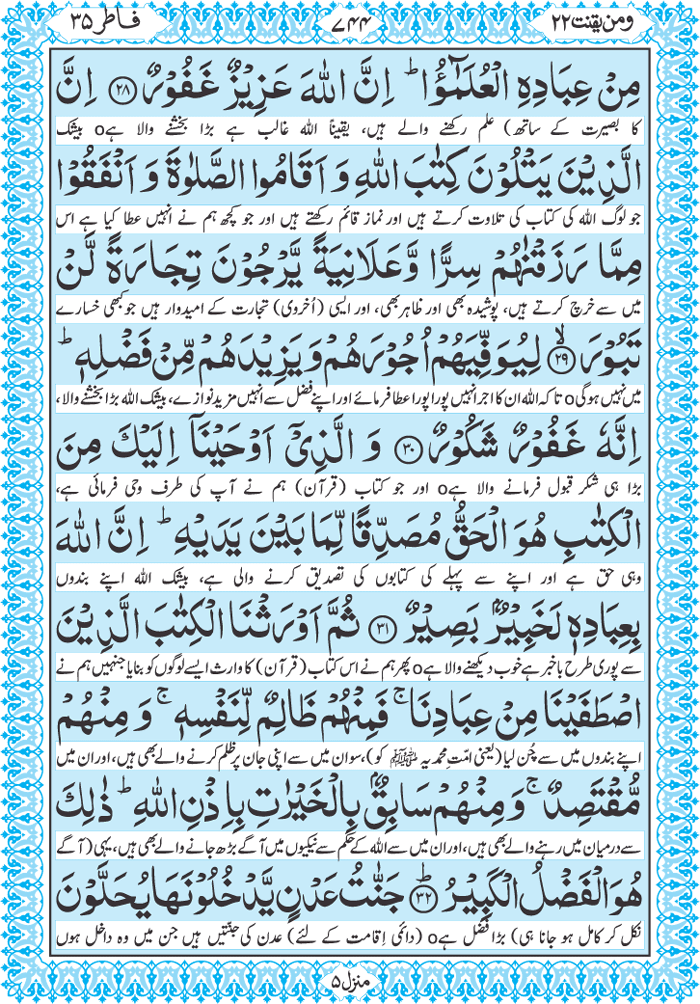 ومن یقنت ۲۲
۷۴۴
فاطر ۳۵
مِنْ عِبَادِهِ الْعُلَمٰٓؤُا ؕ اِنَّ اللّٰهَ عَزِيْزٌ غَفُوْرٌ ﴿۲۸﴾ اِنَّ
کا بصیرت کے ساتھ) علم رکھنے والے ہیں، یقیناً اللہ غالب ہے بڑا بخشنے والا ہے o بیشک
الَّذِيْنَ يَتْلُوْنَ كِتٰبَ اللّٰهِ وَ اَقَامُوا الصَّلٰوةَ وَ اَنْفَقُوْا
جو لوگ اللہ کی کتاب کی تلاوت کرتے ہیں اور نماز قائم رکھتے ہیں اور جو کچھ ہم نے انہیں عطا کیا ہے اس
مِمَّا رَزَقْنٰهُمْ سِرًّا وَّعَلَانِيَةً يَّرْجُوْنَ تِجَارَةً لَّنْ
میں سے خرچ کرتے ہیں، پوشیدہ بھی اور ظاہر بھی، اور ایسی (اُخروی) تجارت کے امیدوار ہیں جو کبھی خسارے
تَبُوْرَ ﴿۲۹﴾ۙ لِيُوَفِّيَهُمْ اُجُوْرَهُمْ وَيَزِيْدَهُمْ مِّنْ فَضْلِهٖ ؕ
میں نہیں ہوگی o تا کہ اللہ ان کا اجر انہیں پورا پورا عطا فرمائے اور اپنے فضل سے انہیں مزید نوازے، بیشک اللہ بڑا بخشنے والا،
اِنَّهٗ غَفُوْرٌ شَكُوْرٌ ﴿۳۰﴾ وَ الَّذِيْۤ اَوْحَيْنَاۤ اِلَيْكَ مِنَ
بڑا ہی شکر قبول فرمانے والا ہے o اور جو کتاب (قرآن) ہم نے آپ کی طرف وحی فرمائی ہے،
الْكِتٰبِ هُوَ الْحَقُّ مُصَدِّقًا لِّمَا بَيْنَ يَدَيْهِ ؕ اِنَّ اللّٰهَ
وہی حق ہے اور اپنے سے پہلے کی کتابوں کی تصدیق کرنے والی ہے، بیشک اللہ اپنے بندوں
بِعِبَادِهٖ لَخَبِيْرٌۢ بَصِيْرٌ ﴿۳۱﴾ ثُمَّ اَوْرَثْنَا الْكِتٰبَ الَّذِيْنَ
سے پوری طرح باخبر ہے خوب دیکھنے والا ہے o پھر ہم نے اس کتاب (قرآن) کا وارث ایسے لوگوں کو بنایا جنہیں ہم نے
اصْطَفَيْنَا مِنْ عِبَادِنَا ۚ فَمِنْهُمْ ظَالِمٌ لِّنَفْسِهٖ ۚ وَ مِنْهُمْ
اپنے بندوں میں سے چُن لیا (یعنی امّتِ محمدیہ ﷺ کو)، سو ان میں سے اپنی جان پر ظلم کرنے والے بھی ہیں، اور ان میں
مُّقْتَصِدٌ ۚ وَ مِنْهُمْ سَابِقٌۢ بِالْخَيْرٰتِ بِاِذْنِ اللّٰهِ ؕ ذٰلِكَ
سے درمیان میں رہنے والے بھی ہیں، اور ان میں سے اللہ کے حکم سے نیکیوں میں آگے بڑھ جانے والے بھی ہیں، یہی (آگے
هُوَ الْفَضْلُ الْكَبِيْرُ ﴿۳۲﴾ؕ جَنّٰتُ عَدْنٍ يَّدْخُلُوْنَهَا يُحَلَّوْنَ
نکل کر کامل ہو جانا ہی) بڑا فضل ہے o (دائمی اِقامت کے لئے) عدن کی جنّتیں ہیں جن میں وہ داخل ہوں
منزل ۵